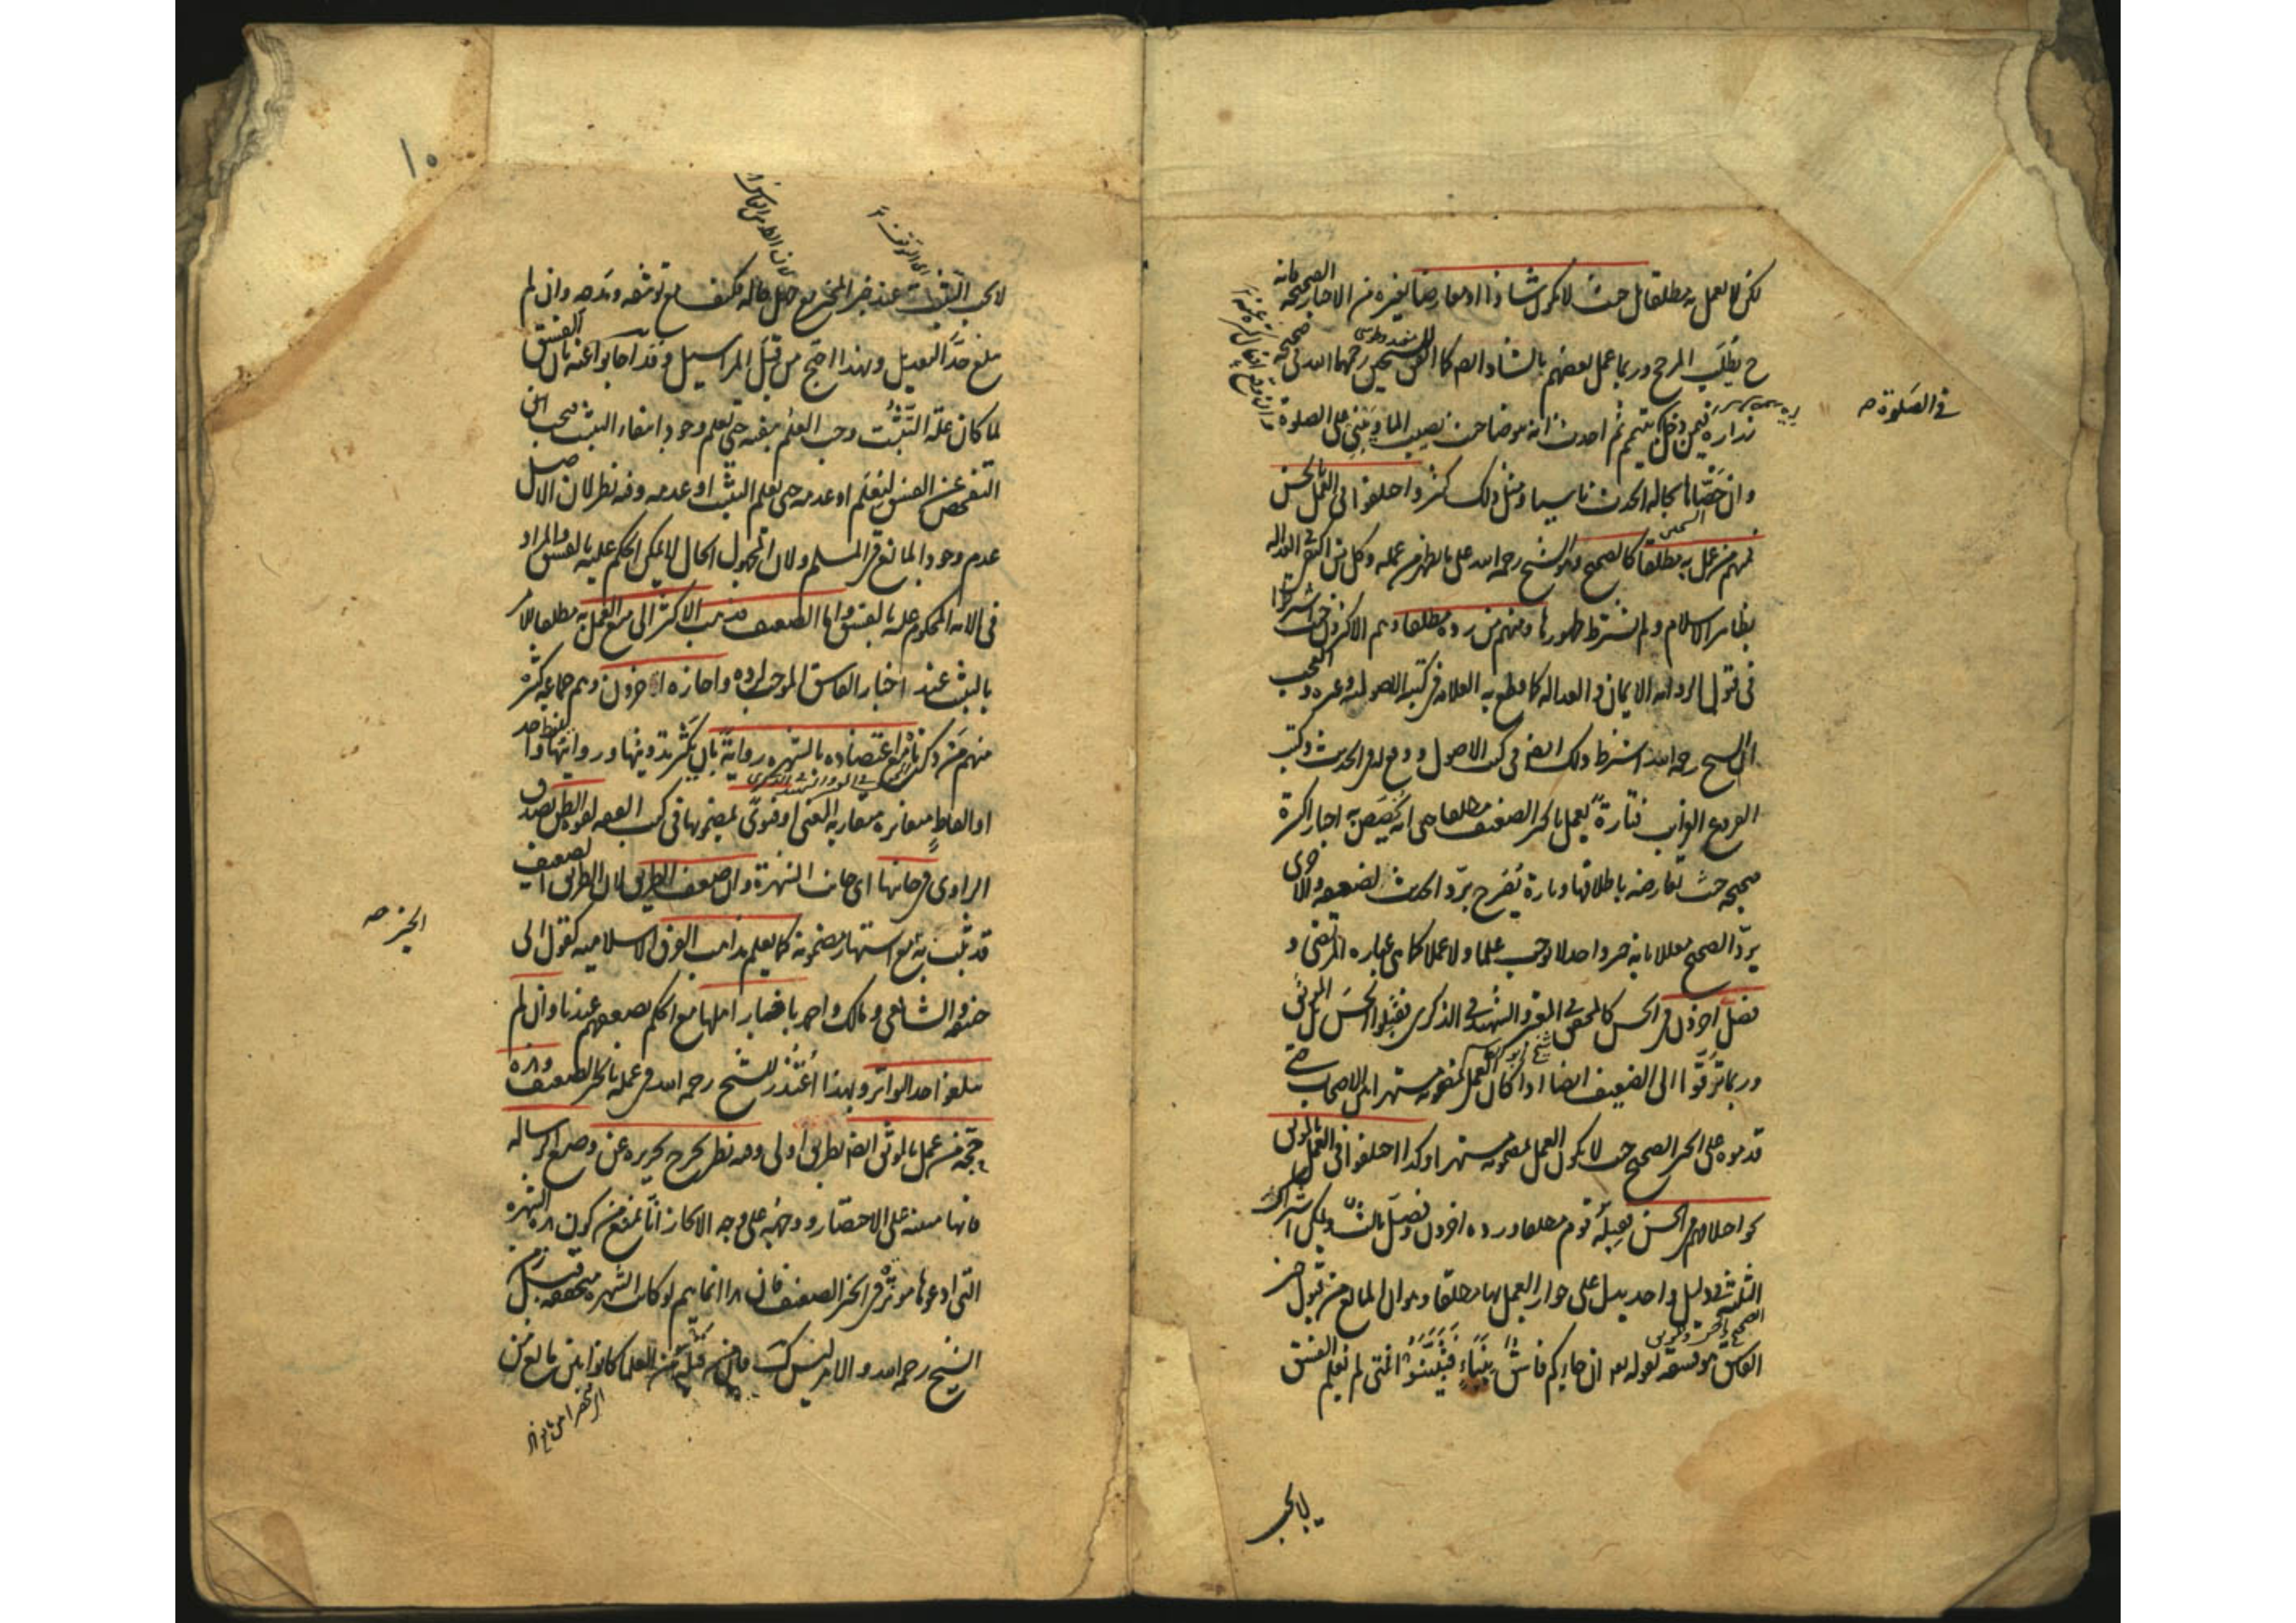 لكن لا يعمل به مطلقا بل حيث لا يكون شاذا او معارضا بغيره من الاخبار الصحيحة فانه
ح يطلب المرجح وربما عمل بعضهم بالشاذ ايضا كما اتفق للشيخين رحمهما الله في صحيحة
زرارة فيمن دخل بتيمم ثم احدث انه يتوضا حيث يصيب الماء ويبني على الصلوة
في الصلوة صح
وان خصاها بحالة الحدث ناسيا ومثل ذلك كثير واختلفوا في العمل بالحسن
فمنهم من عمل به مطلقا كالصحيح وهو الشيخ رحمه الله على ما يظهر من عمله وكل من اكتفى في العدالة
بظاهر الاسلام ولم يشترط ظهورها ومنهم من رده مطلقا وهم الاكثرون حيث اشترطوا
في قبول الرواية الايمان والعدالة كما قطع به العلامة في كتبه الاصولية وغيره والعجب
ان الشيخ رحمه الله اشترط ذلك ايضا في كتب الاصول ووقع له في الحديث وكتب
الفروع الغرايب فتارة يعمل بالخبر الضعيف مطلقا حتى انه يخصص به اخبارا كثيرة
صحيحة حيث تعارضه باطلاقها وتارة يصرح برد الحديث لضعفه واخرى
يرد الصحيح معللا بانه خبر واحد لا يوجب علما ولا عملا كما هي عبارة المرتضى و
فصل اخرون في الحسن كالمحقق في المعتبر والشهيد في الذكرى فقبلوا الحسن بل الموثق
وربما ترقوا الى الضعيف ايضا اذا كان العمل بمضمونه مشتهرا بين الاصحاب حتى
قدموه على الخبر الصحيح حيث لا يكون العمل بمضمونه مشتهرا وكذا اختلفوا في العمل بالموثق
نحو اختلافهم في الحسن فقبله قوم مطلقا ورده اخرون وفصل ثالث ويمكن اشتراك
الثلثة في دليل واحد يدل على جواز العمل بها مطلقا وهو ان المانع من قبول خبر
الفاسق هو فسقه لقوله تع ان جاءكم فاسق بنبأ فتبينوا فمتى لم يعلم الفسق
لا يجب
١٠
لا يجب التثبت عند خبر المخبر مع جهل حاله فكيف مع توثيقه ومدحه وان لم
يبلغ حد التعديل وبهذا احتج من قبل المراسيل وقد اجابوا عنه بان الفسق
لما كان علة التثبت وجب العلم بنفيه حتى يعلم وجود انتفاء التثبت فيجب
التفحص عن الفسق ليعلم او عدمه حتى يعلم التثبت او عدمه وفيه نظر لان الاصل
عدم وجود المانع في المسلم ولان مجهول الحال لا يمكن الحكم عليه بالفسق والمراد
في الاية المحكوم عليه بالفسق واما الضعيف فذهب الاكثر الى منع العمل به مطلقا للامر
بالتثبت عند اخبار الفاسق الموجب لرده واجازه اخرون وهم جماعة كثيرة
منهم من ذكرناه مع اعتضاده بالشهرة رواية بان يكثر تدوينها وروايتها بلفظ واحد
او الفاظ متغايرة متقاربة المعنى او فتوى بمضمونها في كتب الفقه لقوة الظن بصدق
الراوي في جانبها اي جانب الشهرة وان ضعف الطريق فان الطريق الضعيف
قد يثبت به الخبر مع اشتهار مضمونه كما يعلم مذاهب الفرق الاسلامية كقول ابي
الخبر صح
حنيفة والشافعي ومالك واحمد باخبار اهلها مع الحكم بضعفهم عندنا وان لم
يبلغوا حد التواتر وبهذا اعتذر للشيخ رحمه الله في عمله بالخبر الضعيف وهذه
حجة من عمل بالموثق ايضا بطريق اولى وفيه نظر يخرج تحريره عن وضع الرسالة
فانها مبنية على الاختصار ووجهه على وجه الايجاز انا نمنع من كون هذه الشهرة
التي ادعوها مؤثرة في الخبر الضعيف فان هذا انما يتم لو كانت الشهرة متحققة قبل زمن
الشيخ رحمه الله والامر ليس كذلك فان من قبله من العلماء كانوا بين مانع من